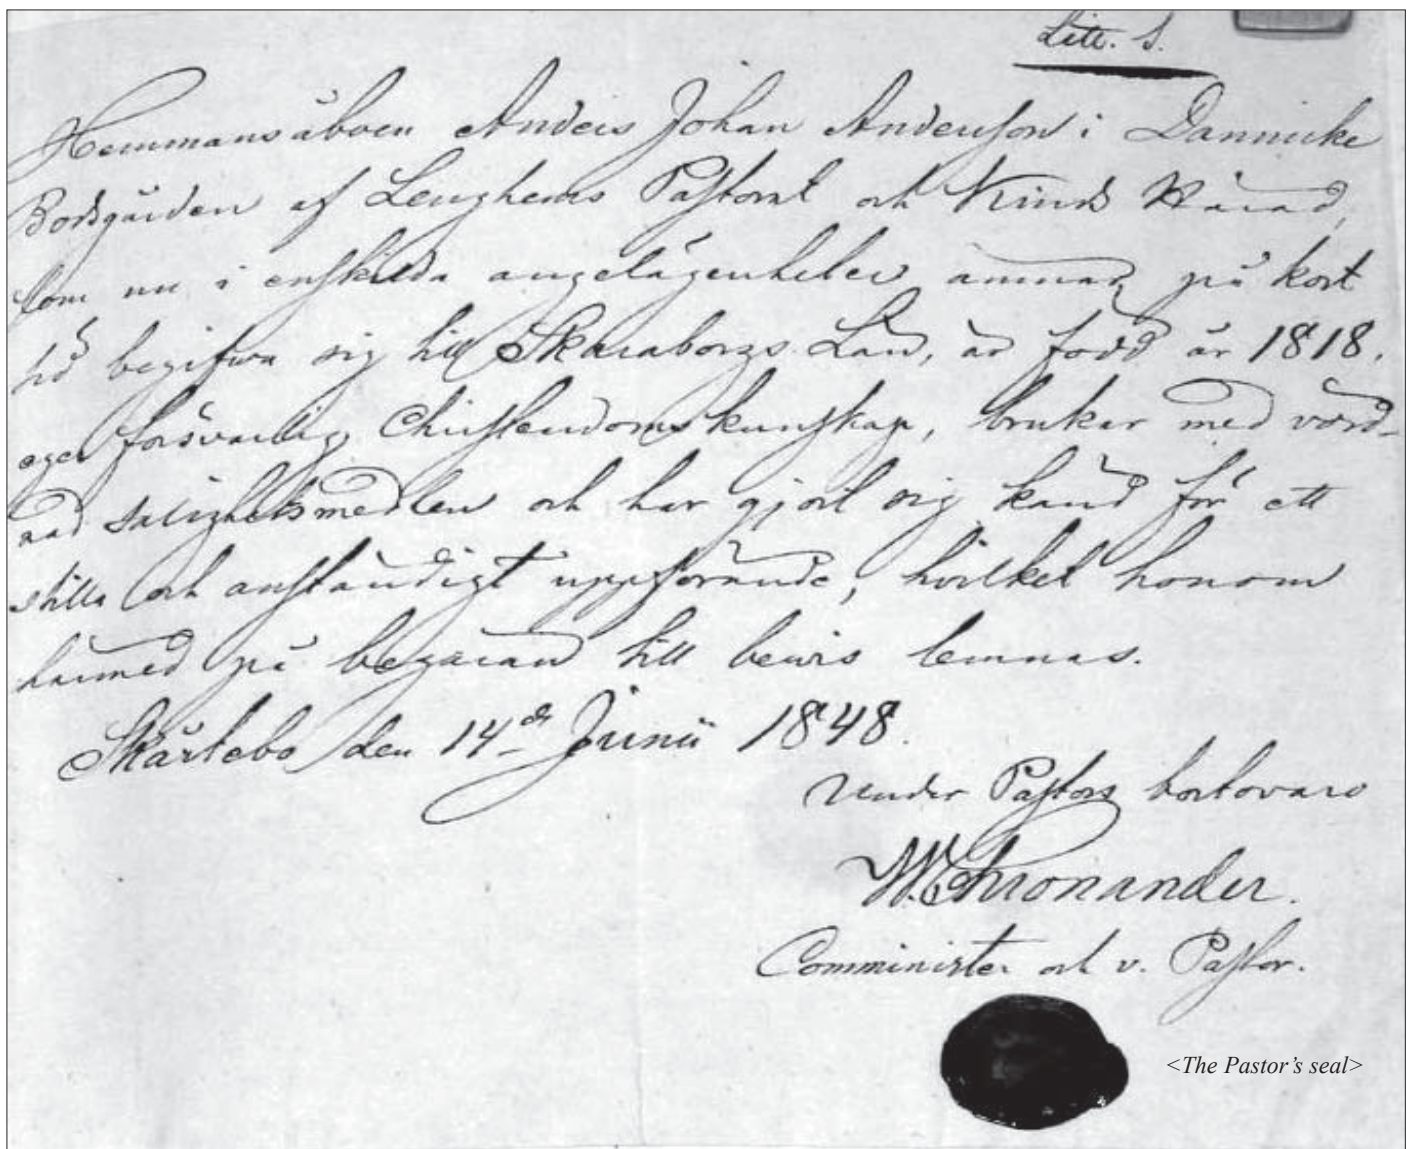 Litt. S.
Hemmansåboen Anders Johan Andersson i Dannicke
Bodsgården af Lenghems Pastorat och Kinds Härad,
som nu i enskilda angelägenheter ämnar på kort
tid begifva sig till Skaraborgs Län, är född år 1818.
eger försvarlig Christendomskunskap, brukar med vörd-
nad salighetsmedlen och har gjort sig känd för ett
stilla och anständigt uppförande, hvilket honom
härmed på begäran till bevis lemnas.
Skårtebo den 14de Junii 1848.
Under Pastors bortovaro
W. Chronander.
Comminister och v. Pastor.
<The Pastor's seal>